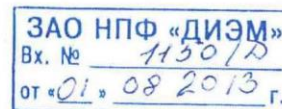 ЗАО НПФ «ДИЭМ»
Вх. № 1150/D
от «01» 08 2013 г.